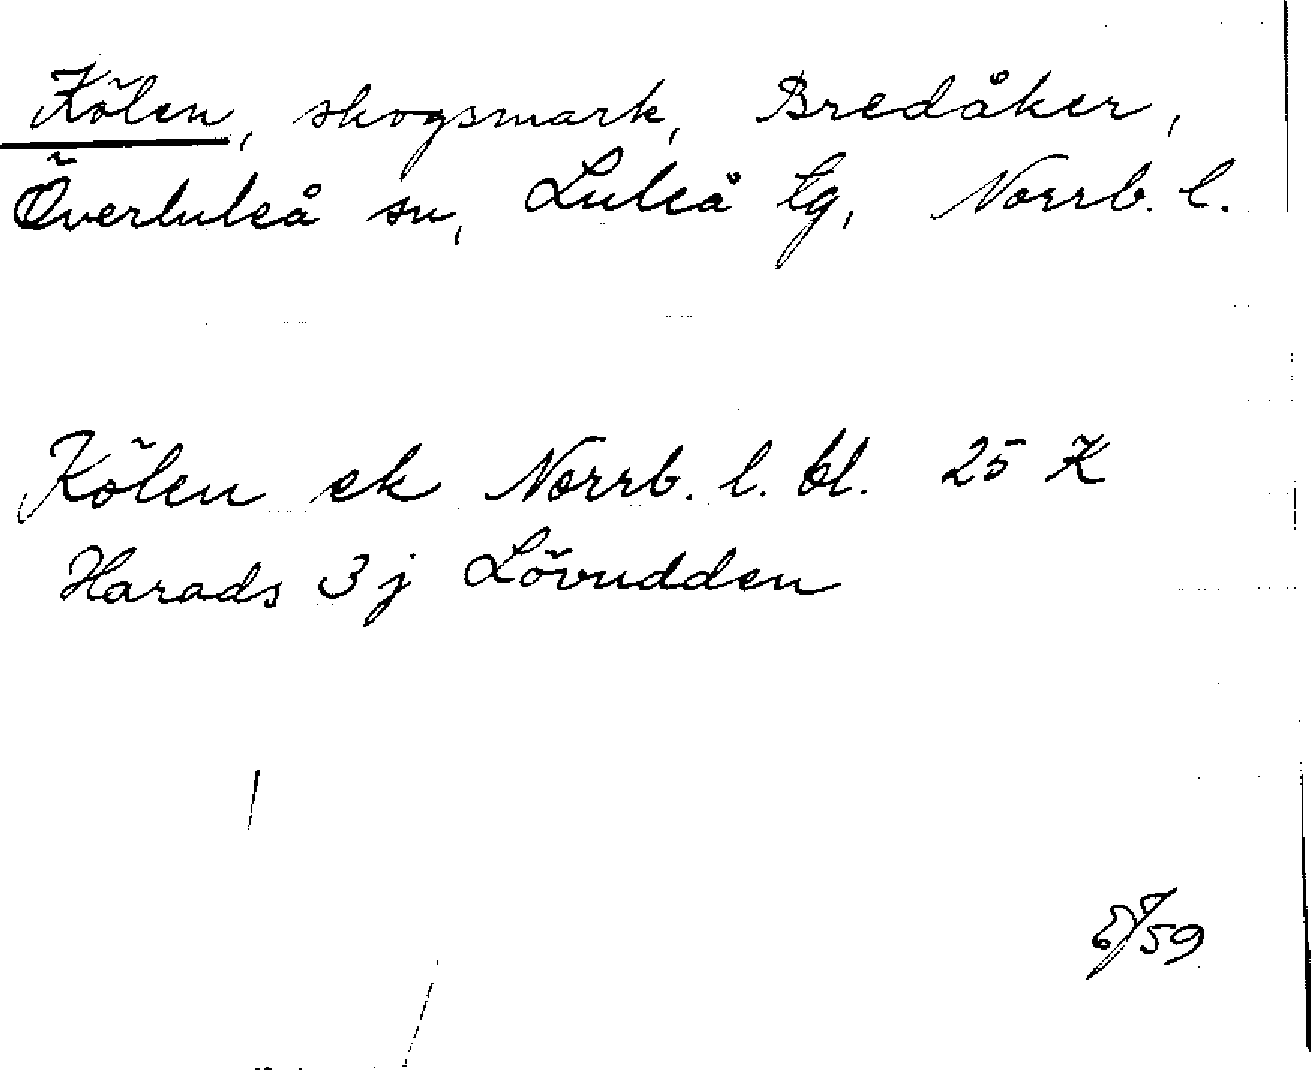 Kölen, skogsmark, Bredåker,
Överluleå sn, Luleå tg, Norrb. l.
Kölen ek Norrb. l. bl. 25 K
Harads 3 j Lövudden